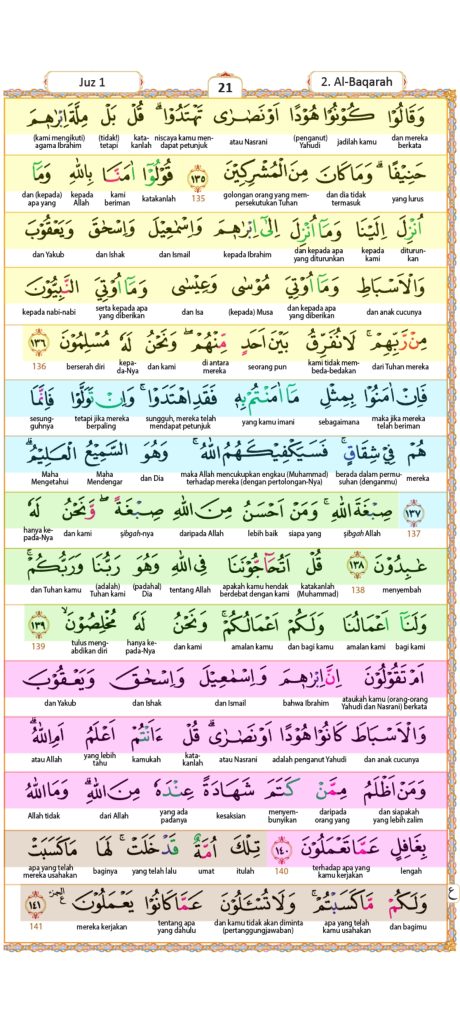 Juz 1
21
2. Al-Baqarah
وَقَالُوْا كُوْنُوْا هُوْدًا اَوْ نَصٰرٰى تَهْتَدُوْا ۗ قُلْ بَلْ مِلَّةَ اِبْرٰهٖمَ
dan mereka berkata jadilah kamu (penganut) Yahudi atau Nasrani niscaya kamu men-dapat petunjuk kata-kanlah (tidak!) tetapi (kami mengikuti) agama Ibrahim
حَنِيْفًا ۗ وَمَا كَانَ مِنَ الْمُشْرِكِيْنَ ١٣٥ قُوْلُوْٓا اٰمَنَّا بِاللّٰهِ وَمَآ
yang lurus dan dia tidak termasuk golongan orang yang mem-persekutukan Tuhan 135 katakanlah kami beriman kepada Allah dan (kepada) apa yang
اُنْزِلَ اِلَيْنَا وَمَآ اُنْزِلَ اِلٰٓى اِبْرٰهٖمَ وَاِسْمٰعِيْلَ وَاِسْحٰقَ وَيَعْقُوْبَ
diturun-kan kepada kami dan kepada apa yang diturunkan kepada Ibrahim dan Ismail dan Ishak dan Yakub
وَالْاَسْبَاطِ وَمَآ اُوْتِيَ مُوْسٰى وَعِيْسٰى وَمَآ اُوْتِيَ النَّبِيُّوْنَ
dan anak cucunya dan kepada apa yang diberikan (kepada) Musa dan Isa serta kepada apa yang diberikan kepada nabi-nabi
مِنْ رَّبِّهِمْ ۚ لَا نُفَرِّقُ بَيْنَ اَحَدٍ مِّنْهُمْ ۖ وَنَحْنُ لَهٗ مُسْلِمُوْنَ ١٣٦
dari Tuhan mereka kami tidak mem-beda-bedakan seorang pun di antara mereka dan kami kepa-da-Nya berserah diri 136
فَاِنْ اٰمَنُوْا بِمِثْلِ مَآ اٰمَنْتُمْ بِهٖ فَقَدِ اهْتَدَوْا ۚ وَاِنْ تَوَلَّوْا فَاِنَّمَا
maka jika mereka telah beriman sebagaimana yang kamu imani sungguh, mereka telah mendapat petunjuk tetapi jika mereka berpaling sesung-guhnya
هُمْ فِيْ شِقَاقٍ ۚ فَسَيَكْفِيْكَهُمُ اللّٰهُ ۚ وَهُوَ السَّمِيْعُ الْعَلِيْمُ ۗ
mereka berada dalam permu-suhan (denganmu) maka Allah mencukupkan engkau (Muhammad) terhadap mereka (dengan pertolongan-Nya) dan Dia Maha Mendengar Maha Mengetahui
١٣٧ صِبْغَةَ اللّٰهِ ۚ وَمَنْ اَحْسَنُ مِنَ اللّٰهِ صِبْغَةً ۖ وَّنَحْنُ لَهٗ
137 şibgah Allah siapa yang lebih baik daripada Allah şibgah-nya dan kami hanya ke-pada-Nya
عٰبِدُوْنَ ١٣٨ قُلْ اَتُحَاۤجُّوْنَنَا فِى اللّٰهِ وَهُوَ رَبُّنَا وَرَبُّكُمْ ۚ
menyembah 138 katakanlah (Muhammad) apakah kamu hendak berdebat dengan kami tentang Allah (padahal) Dia (adalah) Tuhan kami dan Tuhan kamu
وَلَنَآ اَعْمَالُنَا وَلَكُمْ اَعْمَالُكُمْ ۚ وَنَحْنُ لَهٗ مُخْلِصُوْنَ ۙ ١٣٩
bagi kami amalan kami dan bagi kamu amalan kamu dan kami hanya ke-pada-Nya tulus meng-abdikan diri 139
اَمْ تَقُوْلُوْنَ اِنَّ اِبْرٰهٖمَ وَاِسْمٰعِيْلَ وَاِسْحٰقَ وَيَعْقُوْبَ
ataukah kamu (orang-orang Yahudi dan Nasrani) berkata bahwa Ibrahim dan Ismail dan Ishak dan Yakub
وَالْاَسْبَاطَ كَانُوْا هُوْدًا اَوْ نَصٰرٰى ۗ قُلْ ءَاَنْتُمْ اَعْلَمُ اَمِ اللّٰهُ ۗ
dan anak cucunya adalah penganut Yahudi atau Nasrani kata-kanlah kamukah yang lebih tahu atau Allah
وَمَنْ اَظْلَمُ مِمَّنْ كَتَمَ شَهَادَةً عِنْدَهٗ مِنَ اللّٰهِ ۗ وَمَا اللّٰهُ
dan siapakah yang lebih zalim daripada orang yang menyem-bunyikan kesaksian yang ada padanya dari Allah Allah tidak
بِغَافِلٍ عَمَّا تَعْمَلُوْنَ ١٤٠ تِلْكَ اُمَّةٌ قَدْ خَلَتْ ۚ لَهَا مَا كَسَبَتْ
lengah terhadap apa yang kamu kerjakan 140 itulah umat yang telah lalu baginya apa yang telah mereka usahakan
وَلَكُمْ مَّا كَسَبْتُمْ ۚ وَلَا تُسْـَٔلُوْنَ عَمَّا كَانُوْا يَعْمَلُوْنَ ۔ ١٤١ ع
dan bagimu apa yang telah kamu usahakan dan kamu tidak akan diminta (pertanggungjawaban) tentang apa yang dahulu mereka kerjakan 141